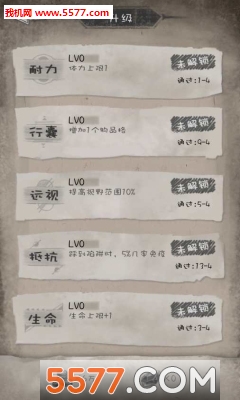 5577我机网
www.5577.com
升级
耐力
LV0
体力上限1
未解锁
通过:1-4
行囊
LV0
增加1个物品格
未解锁
通过:9-4
远视
LV0
提高视野范围10%
未解锁
通过:5-4
抵抗
LV0
踩到陷阱时，5%几率免疫
未解锁
通过:17-4
生命
LV0
生命上限+1
未解锁
通过:7-4
5577.COM